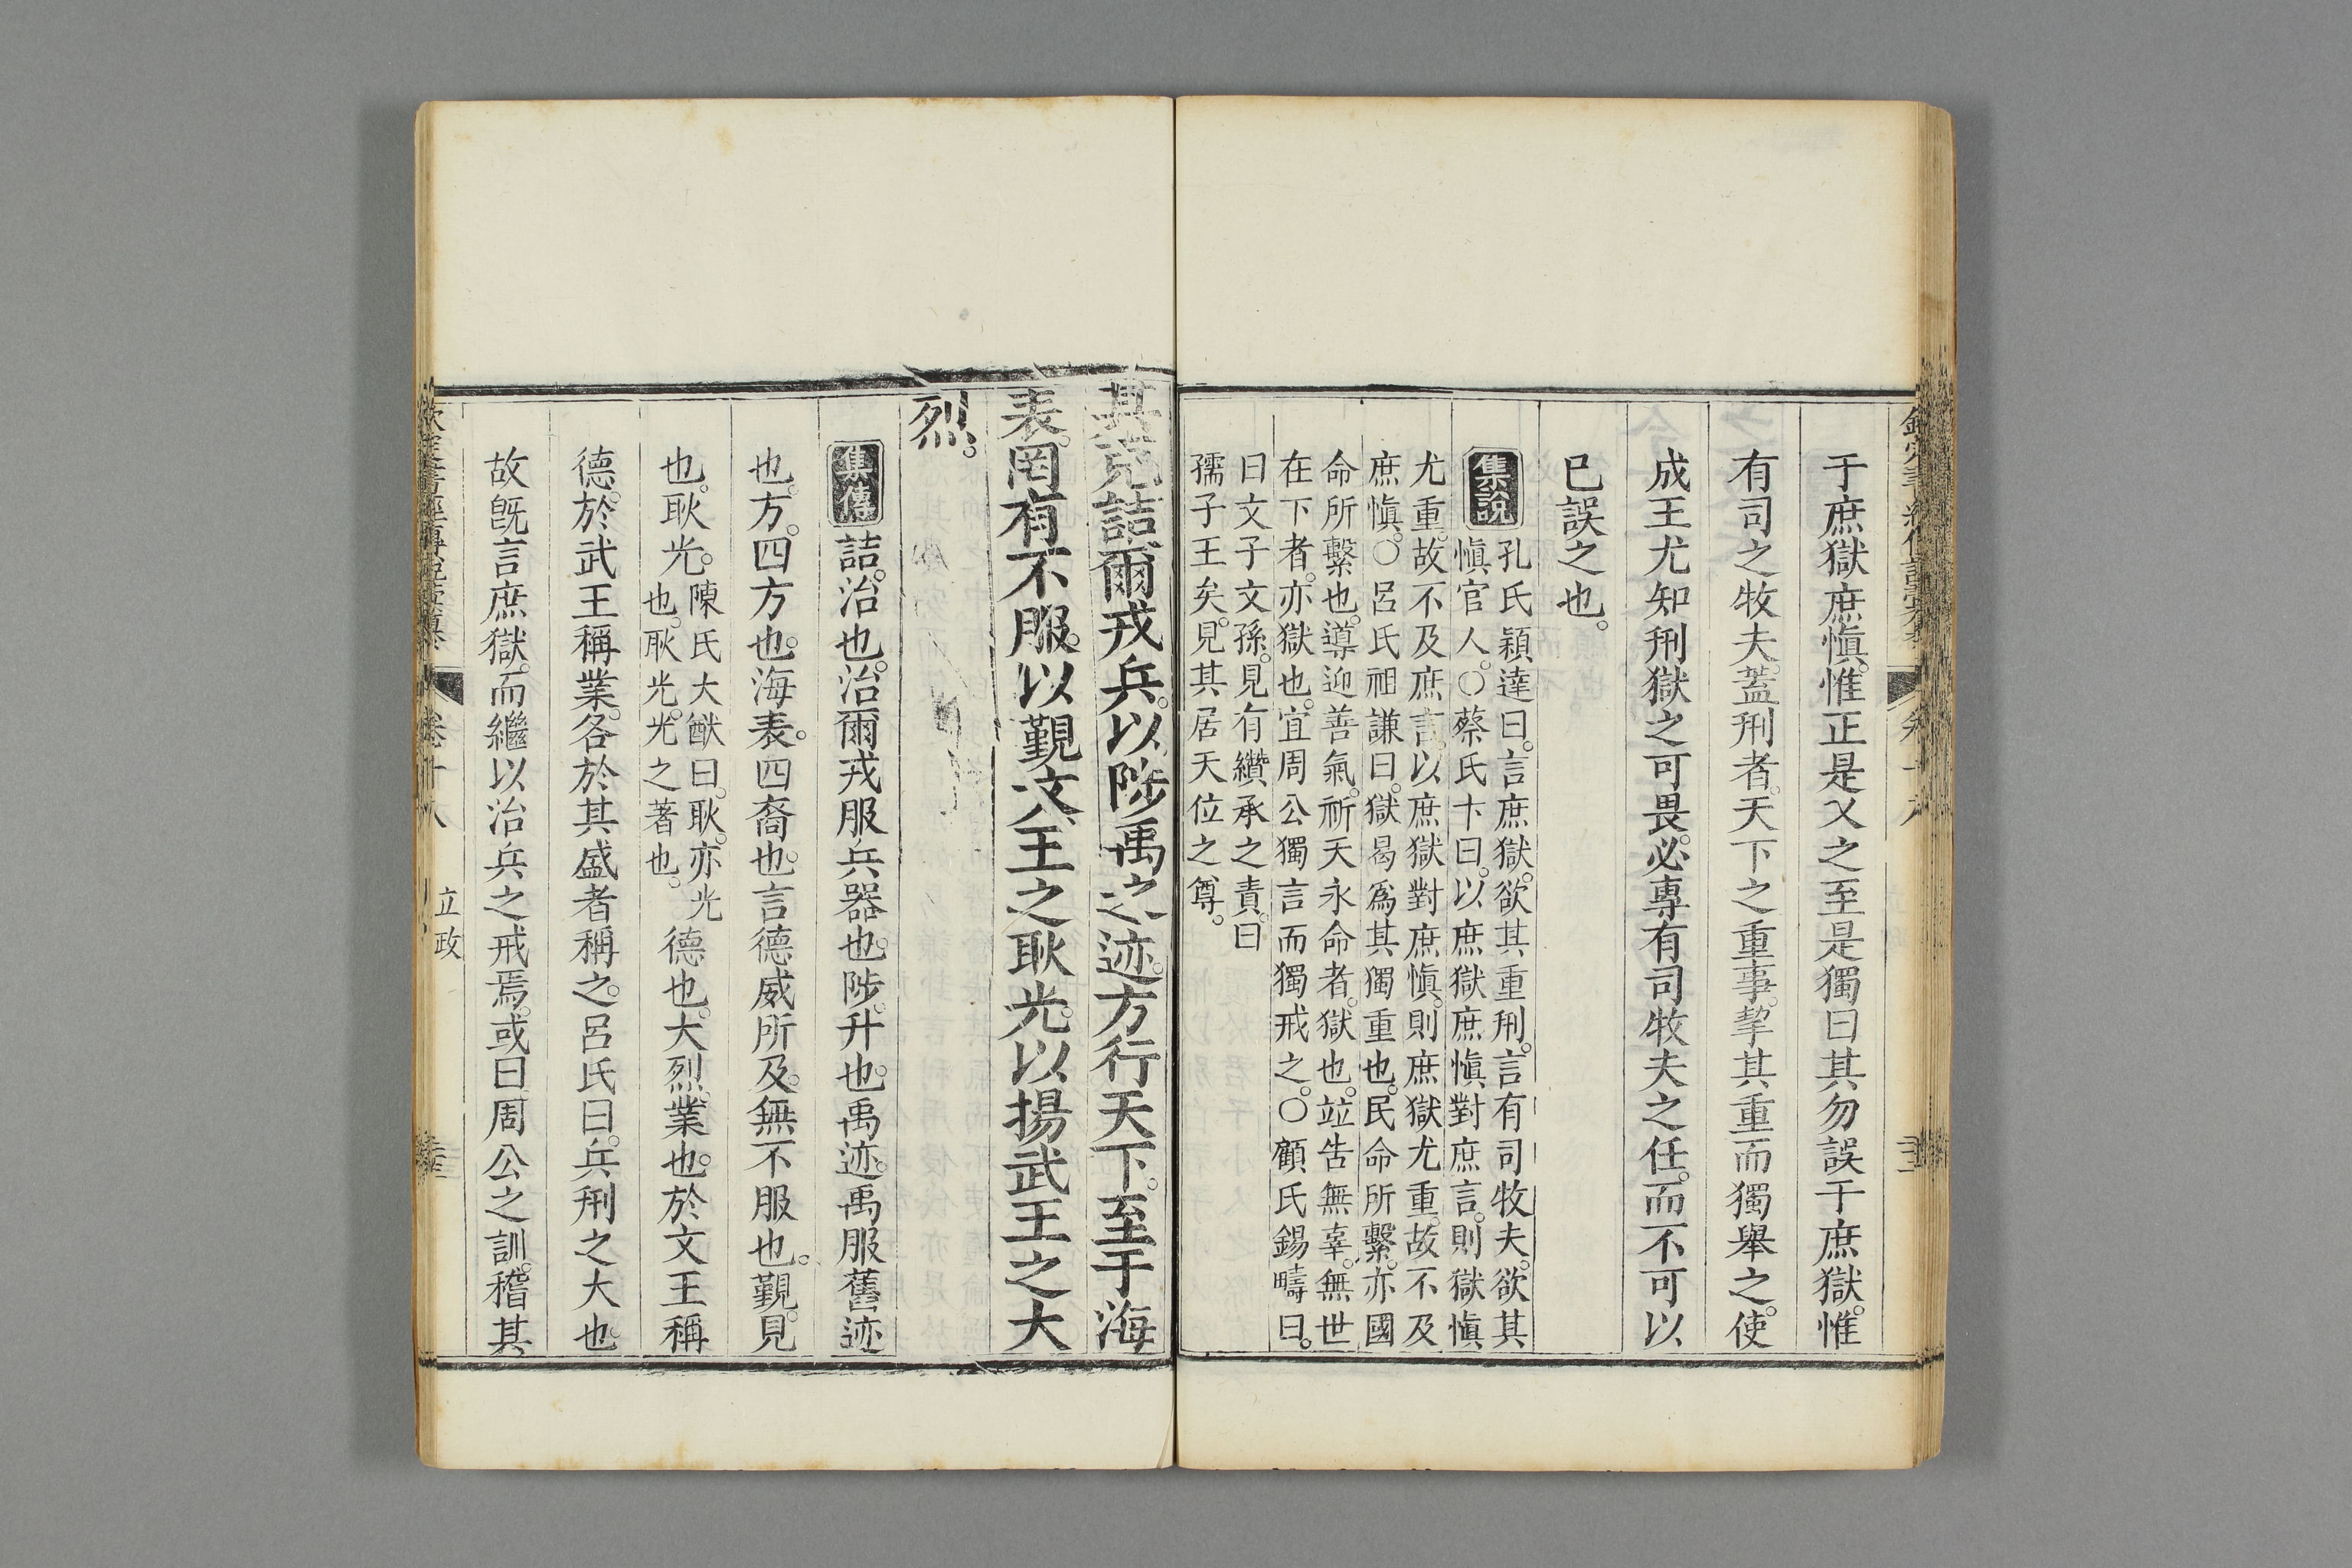 于庶獄庶愼。惟正是乂之。至是獨曰其勿誤于庶獄。惟
有司之牧夫。蓋刑者。天下之重事。挈其重而獨舉之。使
成王尤知刑獄之可畏。必專有司牧夫之任。而不可以
已誤之也。
集說
孔氏穎達曰。言庶獄。欲其重刑。言有司牧夫。欲其
愼官人。○蔡氏卞曰。以庶獄庶愼對庶言。則獄愼
尤重。故不及庶言。以庶獄對庶愼。則庶獄尤重。故不及
庶愼。○呂氏祖謙曰。獄曷爲其獨重也。民命所繫。亦國
命所繫也。導迎善氣。祈天永命者。獄也。竝告無辜。無世
在下者。亦獄也。宜周公獨言而獨戒之。○顧氏錫疇曰。
曰文子文孫。見有纘承之責。曰
孺子王矣。見其居天位之尊。
其克詰爾戎兵。以陟禹之迹。方行天下。至于海
表。罔有不服。以覲文王之耿光。以揚武王之大
烈。
集傳
詰。治也。治爾戎服兵器也。陟。升也。禹迹。禹服舊迹
也。方。四方也。海表。四裔也。言德威所及。無不服也。覲。見
也。耿光。
陳氏大猷曰。耿。亦光
也。耿光。光之著也。
德也。大烈。業也。於文王稱
德。於武王稱業。各於其盛者稱之。呂氏曰。兵。刑之大也。
故旣言庶獄。而繼以治兵之戒焉。或曰。周公之訓。稽其
欽定書經傳說彙纂
卷十八
立政